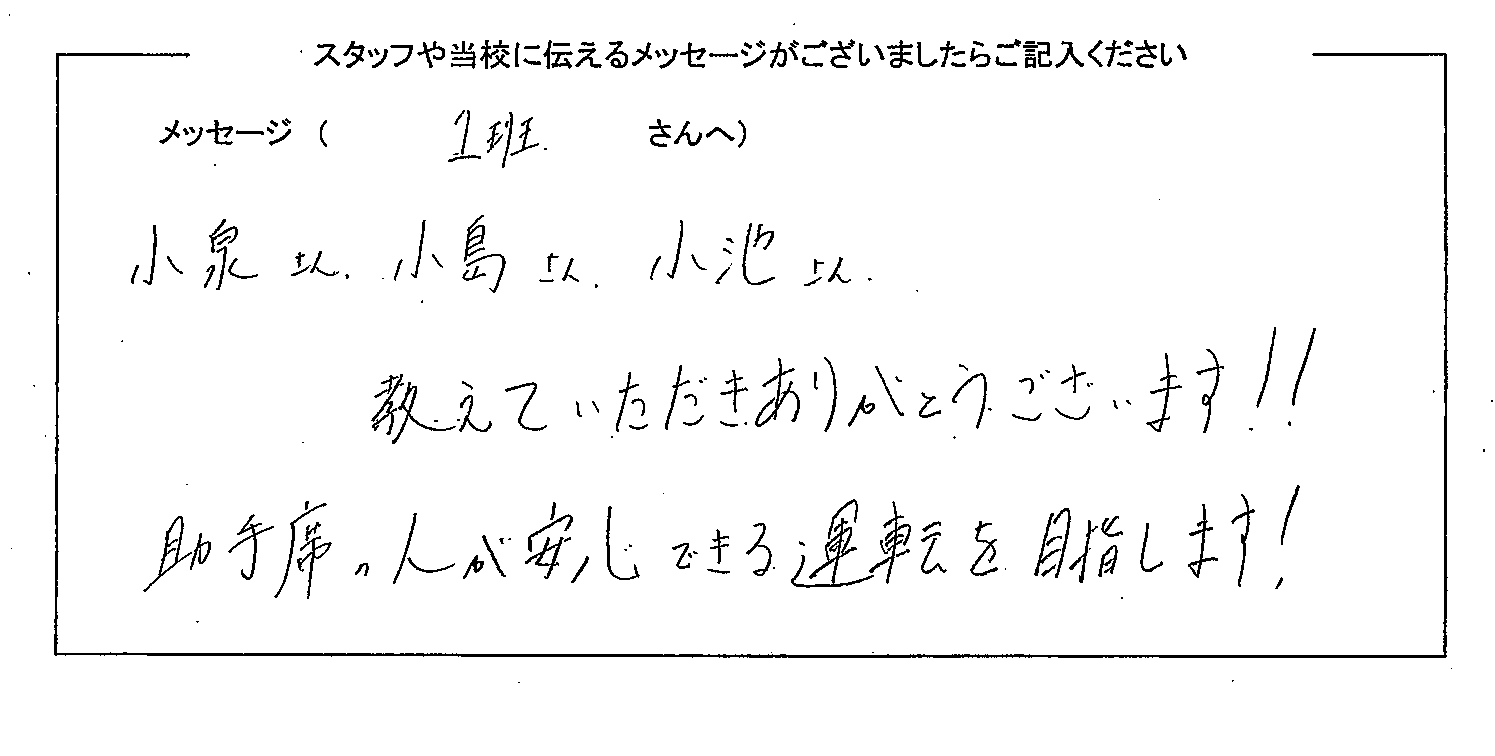 スタッフや当校に伝えるメッセージがございましたらご記入ください
メッセージ( 1班 さんへ)
小泉さん、小島さん、小池さん、
教えていただきありがとうございます!!
助手席の人が安心できる運転を目指します!